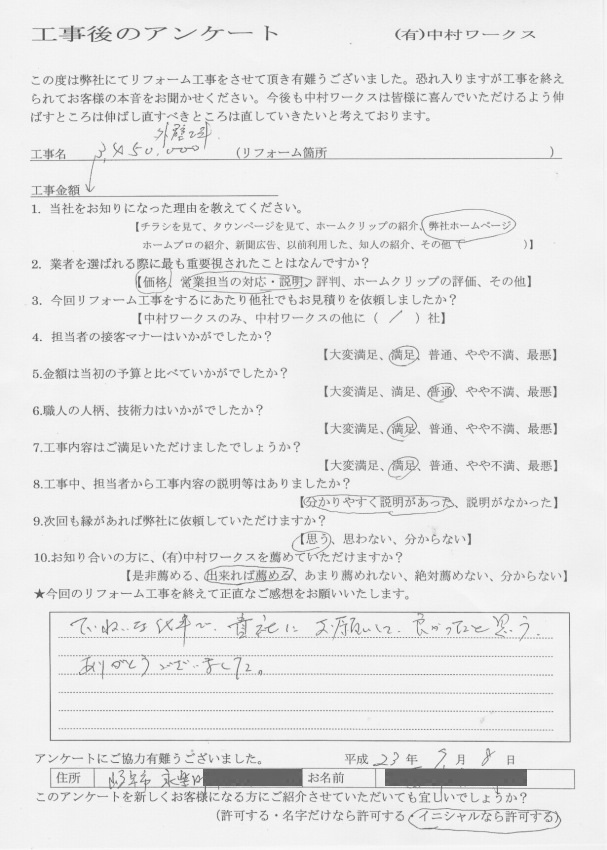 工事後のアンケート (有)中村ワークス
この度は弊社にてリフォーム工事をさせて頂き有難うございました。恐れ入りますが工事を終え
られてお客様の本音をお聞かせください。今後も中村ワークスは皆様に喜んでいただけるよう伸
ばすところは伸ばし直すべきところは直していきたいと考えております。
外壁工事
工事名 3,450,000 (リフォーム箇所 )
工事金額
1. 当社をお知りになった理由を教えてください。
【チラシを見て、タウンページを見て、ホームクリップの紹介、弊社ホームページ
ホームプロの紹介、新聞広告、以前利用した、知人の紹介、その他( )】
2. 業者を選ばれる際に最も重要視されたことはなんですか?
【価格、営業担当の対応・説明、評判、ホームクリップの評価、その他】
3. 今回リフォーム工事をするにあたり他社でもお見積りを依頼しましたか?
【中村ワークスのみ、中村ワークスの他に( / )社】
4. 担当者の接客マナーはいかがでしたか?
【大変満足、満足、普通、やや不満、最悪】
5.金額は当初の予算と比べていかがでしたか?
【大変満足、満足、普通、やや不満、最悪】
6.職人の人柄、技術力はいかがでしたか?
【大変満足、満足、普通、やや不満、最悪】
7.工事内容はご満足いただけましたでしょうか?
【大変満足、満足、普通、やや不満、最悪】
8.工事中、担当者から工事内容の説明等はありましたか?
【分かりやすく説明があった、説明がなかった】
9.次回も縁があれば弊社に依頼していただけますか?
【思う、思わない、分からない】
10.お知り合いの方に、(有)中村ワークスを薦めていただけますか?
【是非薦める、出来れば薦める、あまり薦めれない、絶対薦めない、分からない】
★今回のリフォーム工事を終えて正直なご感想をお願いいたします。
ていねいな仕事で、貴社にお願いして、良かったと思う。
ありがとうございました。
アンケートにご協力有難うございました。 平成 23 年 9 月 8 日
住所 お名前
このアンケートを新しくお客様になる方にご紹介させていただいても宜しいでしょうか?
(許可する・名字だけなら許可する・イニシャルなら許可する)